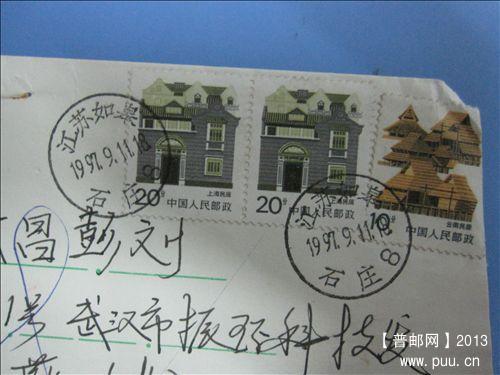 上海民居
20分
中国人民邮政
上海民居
20分
中国人民邮政
10分
云南民居
中国人民邮政
江苏如皋
1997.9.11.18
石庄 8
江苏如皋
1997.9.11.18
石庄 8
昌彭刘
号武汉市振环科技发
【普邮网】2013
www.puu.cn